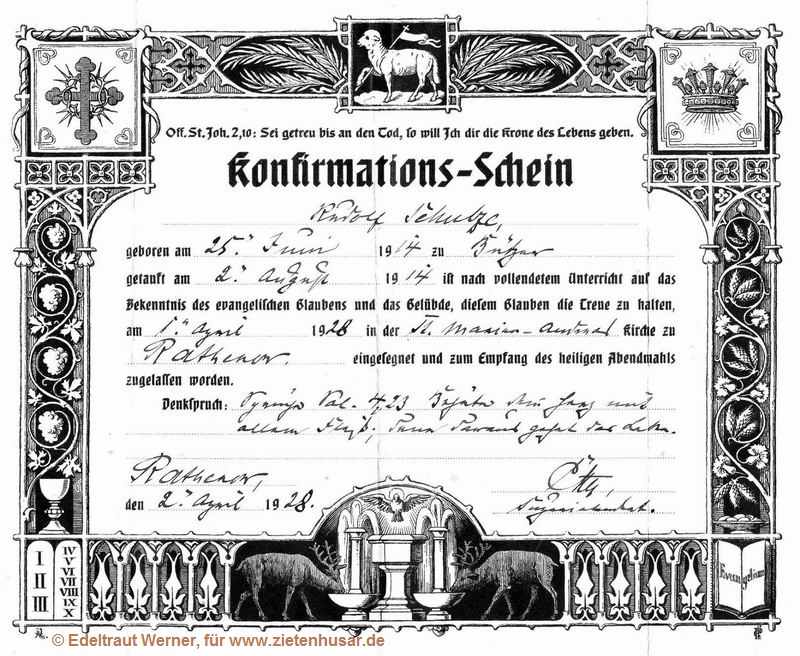 Off. St. Joh. 2,10: Sei getreu bis an den Tod, so will Ich dir die Krone des Lebens geben.
Konfirmations-Schein
Rudolf Schulze,
geboren am 25. Juni 1914 zu Bützer
getauft am 2. August 1914 ist nach vollendetem Unterricht auf das
Bekenntnis des evangelischen Glaubens und das Gelübde, diesem Glauben die Treue zu halten,
am 1. April 1928 in der St. Marien-Andreas Kirche zu
Rathenow. eingesegnet und zum Empfang des heiligen Abendmahls
zugelassen worden.
Denkspruch: Sprüche Sal. 4,23 Behüte dein Herz mit
allem Fleiß; denn daraus gehet das Leben.
Rathenow,
den 2. April 1928.
Superintendent.
I
II
III
IV
V
VI
VII
VIII
IX
X
Evangelium
© Edeltraut Werner, für www.zietenhusar.de